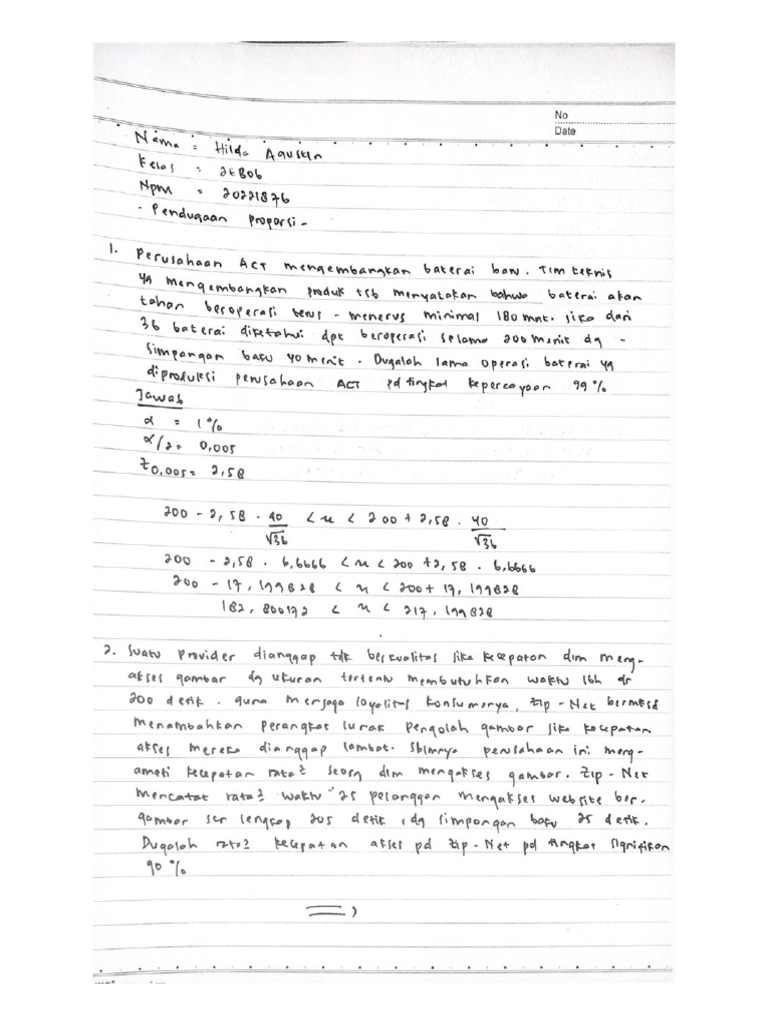 No
Date
Nama : Hilda Agustin
Kelas : 2EB06
Npm : 20221876
- Pendugaan proporsi -
1. Perusahaan ACT mengembangkan baterai baru. Tim teknis
yg mengembangkan produk tsb menyatakan bahwa baterai akan
tahan beroperasi terus - menerus minimal 180 mnt. jika dari
36 baterai diketahui dpt beroperasi selama 200 menit dg -
simpangan baku 40 menit. Dugalah lama operasi baterai yg
diproduksi perusahaan ACT pd tingkat kepercayaan 99%
Jawab
α = 1%
α/2 = 0,005
Z0,005 = 2,58
200 - 2,58 . 40/√36 < u < 200 + 2,58 . 40/√36
200 - 2,58 . 6,6666 < u < 200 + 2,58 . 6,6666
200 - 17,199828 < u < 200 + 17,199828
182,800172 < u < 217,199828
2. Suatu Provider dianggap tdk berkualitas jika kecepatan dlm meng-
akses gambar dg ukuran tertentu membutuhkan waktu lbh dr
200 detik. guna menjaga loyalitas konsumennya, Zip-Net bermksd
menambahkan perangkat lunak pengolah gambar jika kecepatan
akses mereka dianggap lambat. Sblmnya perusahaan ini meng-
amati kecepatan rata2 seorg dlm mengakses gambar. Zip-Net
mencatat rata2 waktu 25 pelanggan mengakses website ber-
gambar scr lengkap 205 detik, dg simpangan baku 25 detik.
Dugalah rata2 kecepatan akses pd Zip-Net pd tingkat signifikan
90%